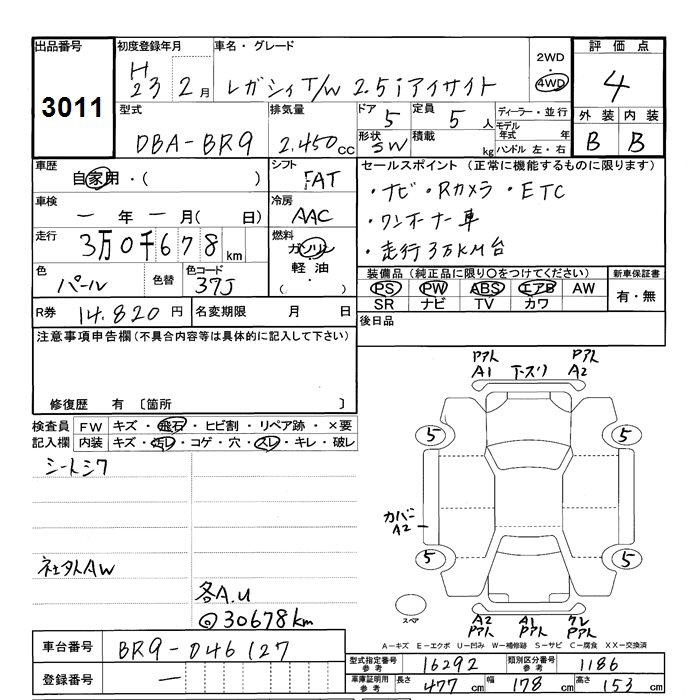 出品番号 初度登録年月 車名・グレード 2WD 評価点
3011 H23 2月 レガシィT/W 2.5iアイサイト 4WD 4
型式 排気量 ドア 定員 ディーラー・並行 外装 内装
DBA-BR9 2.450cc 5 5人 モデル年式 年 B B
形状 SW 積載 kg ハンドル 左・右
車歴 シフト セールスポイント（正常に機能するものに限ります）
自家用・（ ） FAT ・ナビ・Rカメラ・ETC
車検 冷房 ・ワンオーナー車
一年一月（ 日） AAC ・走行3万KM台
走行 燃料
3万0千678km ガソリン
色 色替 色コード 軽油 装備品（純正品に限り○をつけてください） 新車保証書
パール 37J （ ・ ） PS PW ABS エアB AW 有・無
SR ナビ TV カワ
R券 14.820円 名変期限 月 日 後日品
注意事項申告欄（不具合内容等は具体的に記入して下さい）
修復歴 有 〔箇所 〕
検査員記入欄 FW キズ・飛石・ヒビ割・リペア跡・×要
内装 キズ・汚レ・コゲ・穴・スレ・キレ・破レ
シートシワ
社外AW
各A.U
@30678km
PアトA1 下スリ PアトA2
5 5
カバーA2
5 5
スペア
A2Pアト A1Pアト クレPアト
A－キズ E－エクボ U－凹み W－補修跡 S－サビ C－腐食 XX－交換済
車台番号 BR9-046127
登録番号 一
型式指定番号参考 16292 類別区分番号参考 1186
車庫証明用参考 長さ 477cm 幅 178cm 高さ 153cm